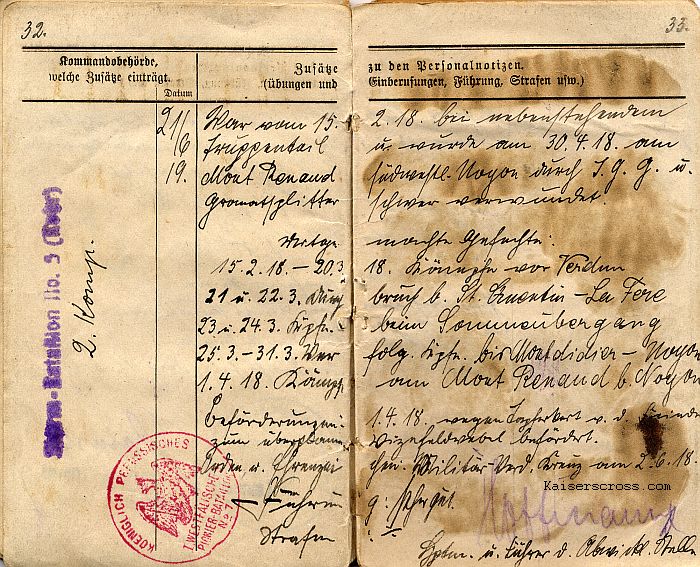 32.
Kommandobehörde,
welche Zusätze einträgt.
Datum
Zusätze
(Übungen und
21/6
19.
War vom 15.
Truppenteil
Mont Renaud
Granatsplitter
15.2.18. – 20.3.
21 u. 22.3. Durch
23 u. 24.3. Kpfe.
25.3. – 31.3. Ver
1.4.18. Kämpfe
Beförderungen:
zum überplanm.
Orden u. Ehrenzei
Führun
Strafen
Bataillon No. 3
2. Komp.
KOENIGLICH PREUSSISCHES
I. WESTFÄLISCHES
PIONIER-BATAILLON
No. 7
33.
zu den Personalnotizen.
Einberufungen, Führung, Strafen usw.)
2.18. bei nebenstehendem
u. wurde am 30.4.18. am
südwestl. Noyon durch I. G. G. u.
schwer verwundet.
machte Gefechte:
18. Kämpfe vor Verdun
bruch b. St. Quentin – La Fere
beim Sommeübergang
folg. Kpfe. bis Montdidier – Noyon
am Mont Renaud b. Noyon
1.4.18 wegen Tapferkeit v. d. Feinde
Vizefeldwebel befördert.
chen: Militär Verd. Kreuz am 2.6.18.
g: sehr gut.
Kaiserscross.com
Hoffmann
Hptm. u. Führer d. Abwickl. Stelle